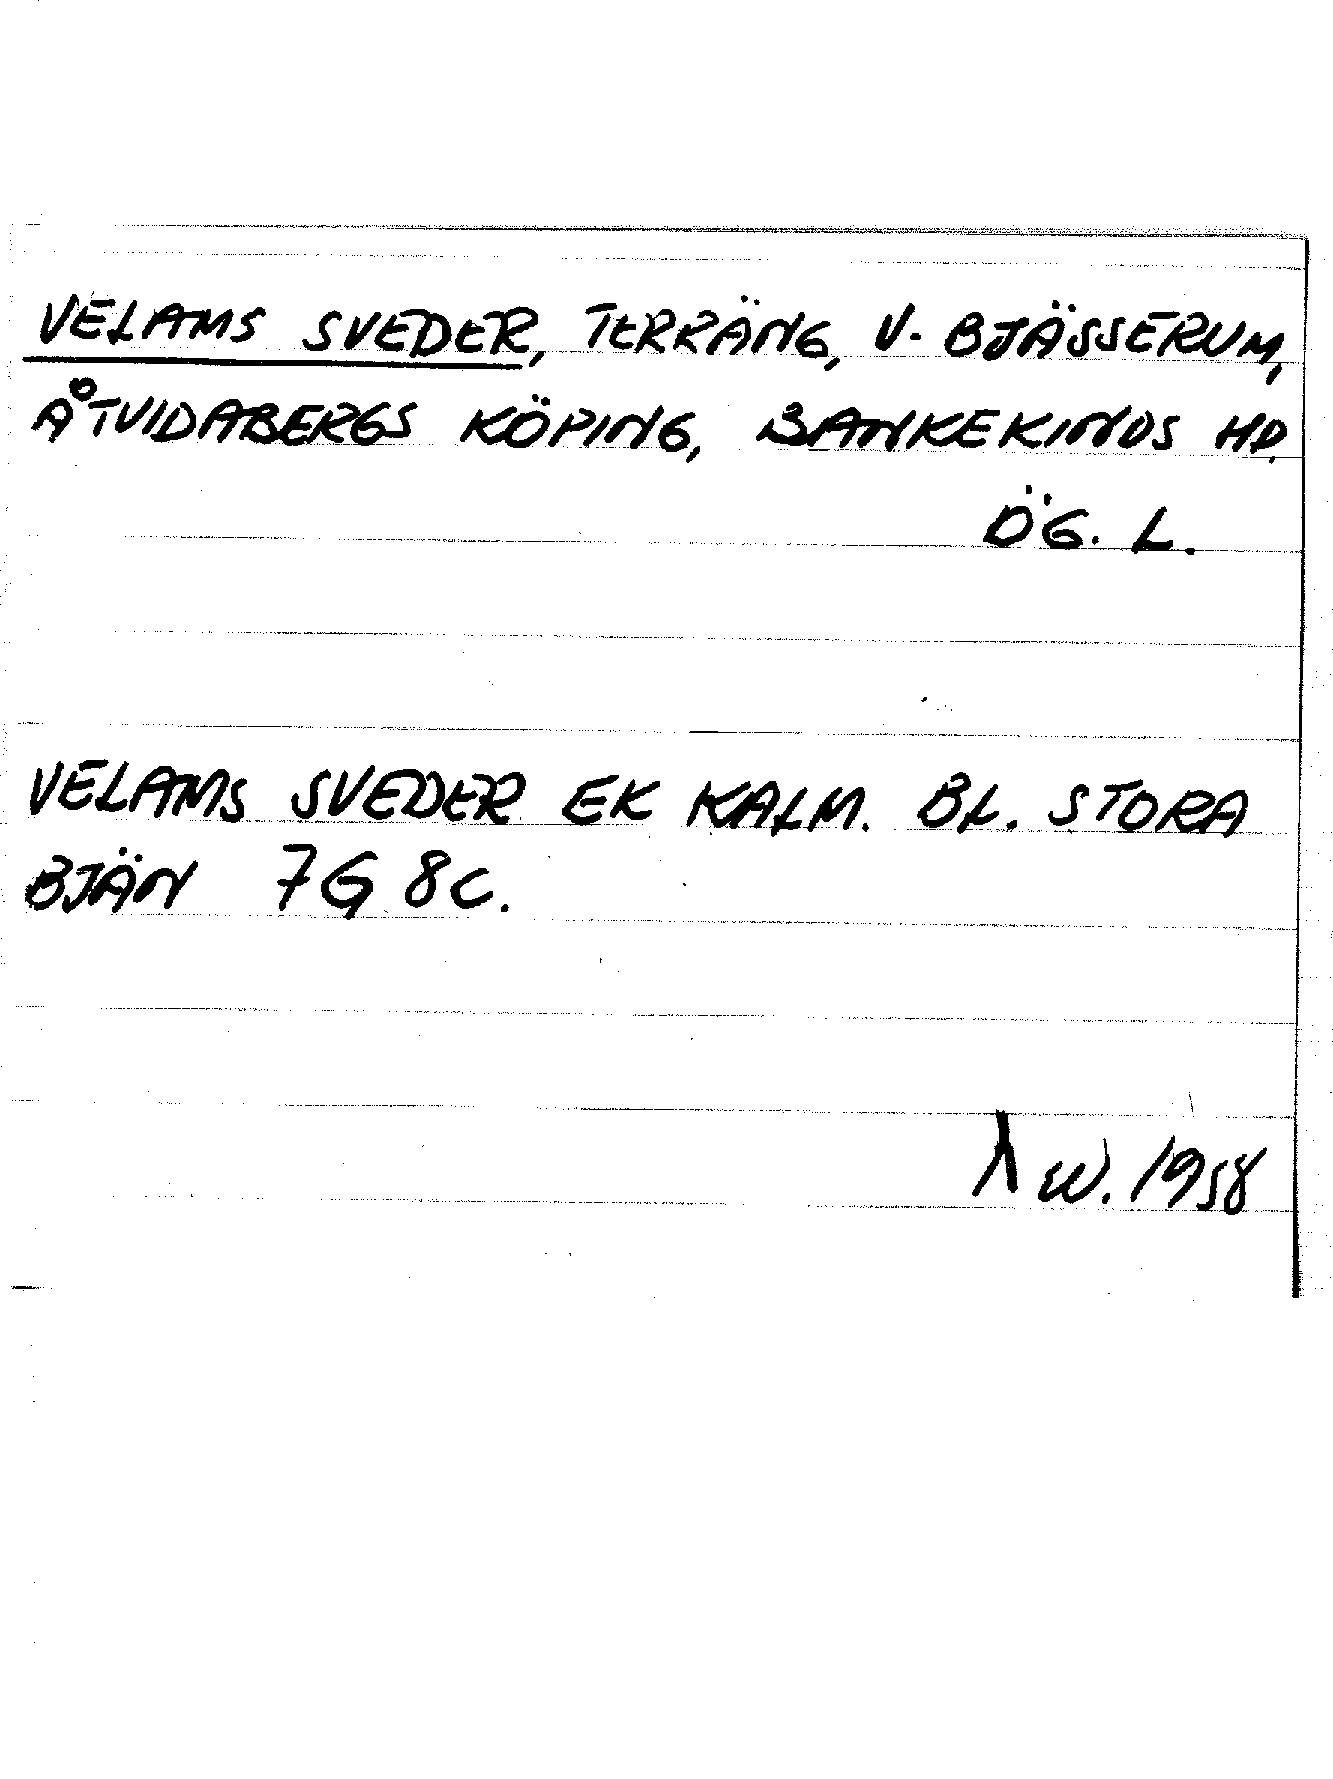 VELAMS SVEDER, TERRÄNG, V. BJÄSSERUM,
ÅTVIDABERGS KÖPING, BANKEKINDS HD.
ÖG. L.
VELAMS SVEDER EK KALM. BL. STORA
BJÄN 7G 8C.
W. 1958